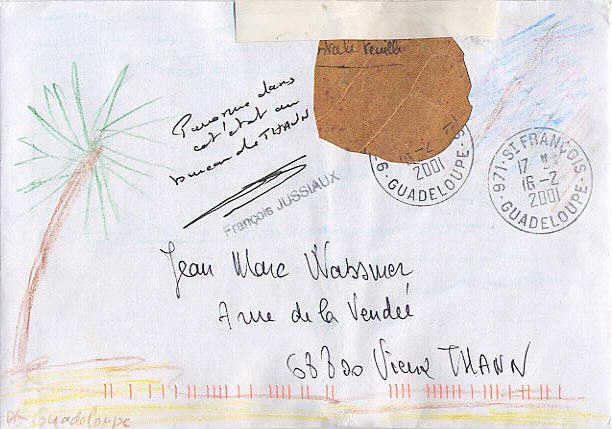 Parvenue dans
cet état au
bureau de THANN
François JUSSIAUX
2001
GUADELOUPE
971 - ST. FRANÇOIS
17 H
16-2
2001
GUADELOUPE
Jean Marc Wassmer
rue de la Vendée
68800 Vieux THANN
Guadeloupe